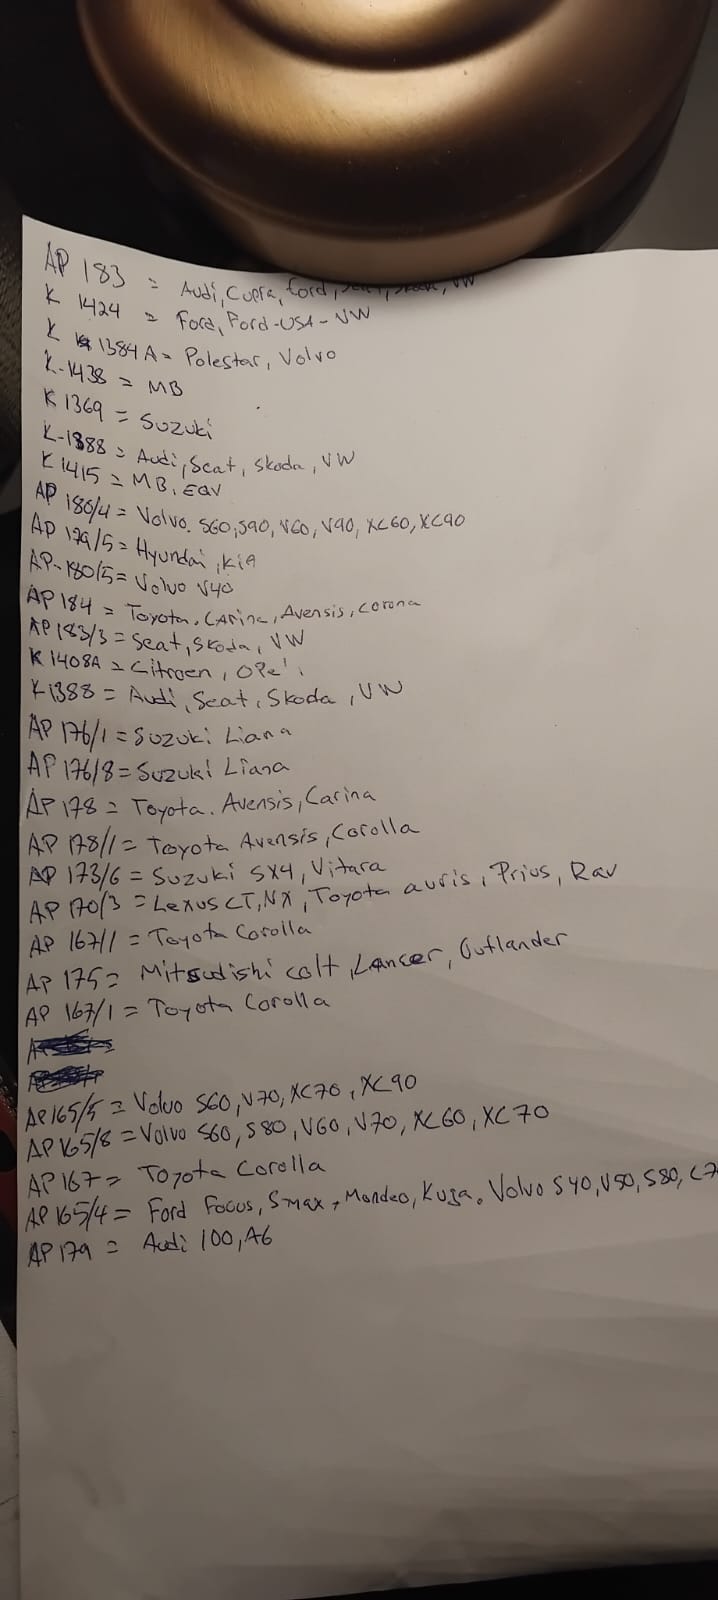 AP 183 = Audi, Cupra, Ford, Seat, Skoda, VW
K 1424 = Ford, Ford-USA-VW
K 1384A = Polestar, Volvo
K-1438 = MB
K 1369 = Suzuki
K-1388 = Audi, Seat, Skoda, VW
K 1415 = MB, EQV
AP 186/4 = Volvo. S60, S90, V60, V90, XC60, XC90
AP 179/5 = Hyundai, Kia
AP-180/5 = Volvo V40
AP 184 = Toyota. Carina, Avensis, Corona
AP 183/3 = Seat, Skoda, VW
K 1408A = Citroen, Opel
K 1388 = Audi, Seat, Skoda, VW
AP 176/1 = Suzuki Liana
AP 176/8 = Suzuki Liana
AP 178 = Toyota. Avensis, Carina
AP 178/1 = Toyota Avensis, Corolla
AP 173/6 = Suzuki SX4, Vitara
AP 170/3 = Lexus CT, NX, Toyota auris, Prius, Rav
AP 167/1 = Toyota Corolla
AP 175 = Mitsudishi colt, Lancer, Outlander
AP 167/1 = Toyota Corolla
AP 165/5 = Volvo S60, V70, XC70, XC90
AP 165/8 = Volvo S60, S80, V60, V70, XC60, XC70
AP 167 = Toyota Corolla
AP 165/4 = Ford Focus, Smax, Mondeo, Kuga. Volvo S40, V50, S80, C7
AP 179 = Audi 100, A6